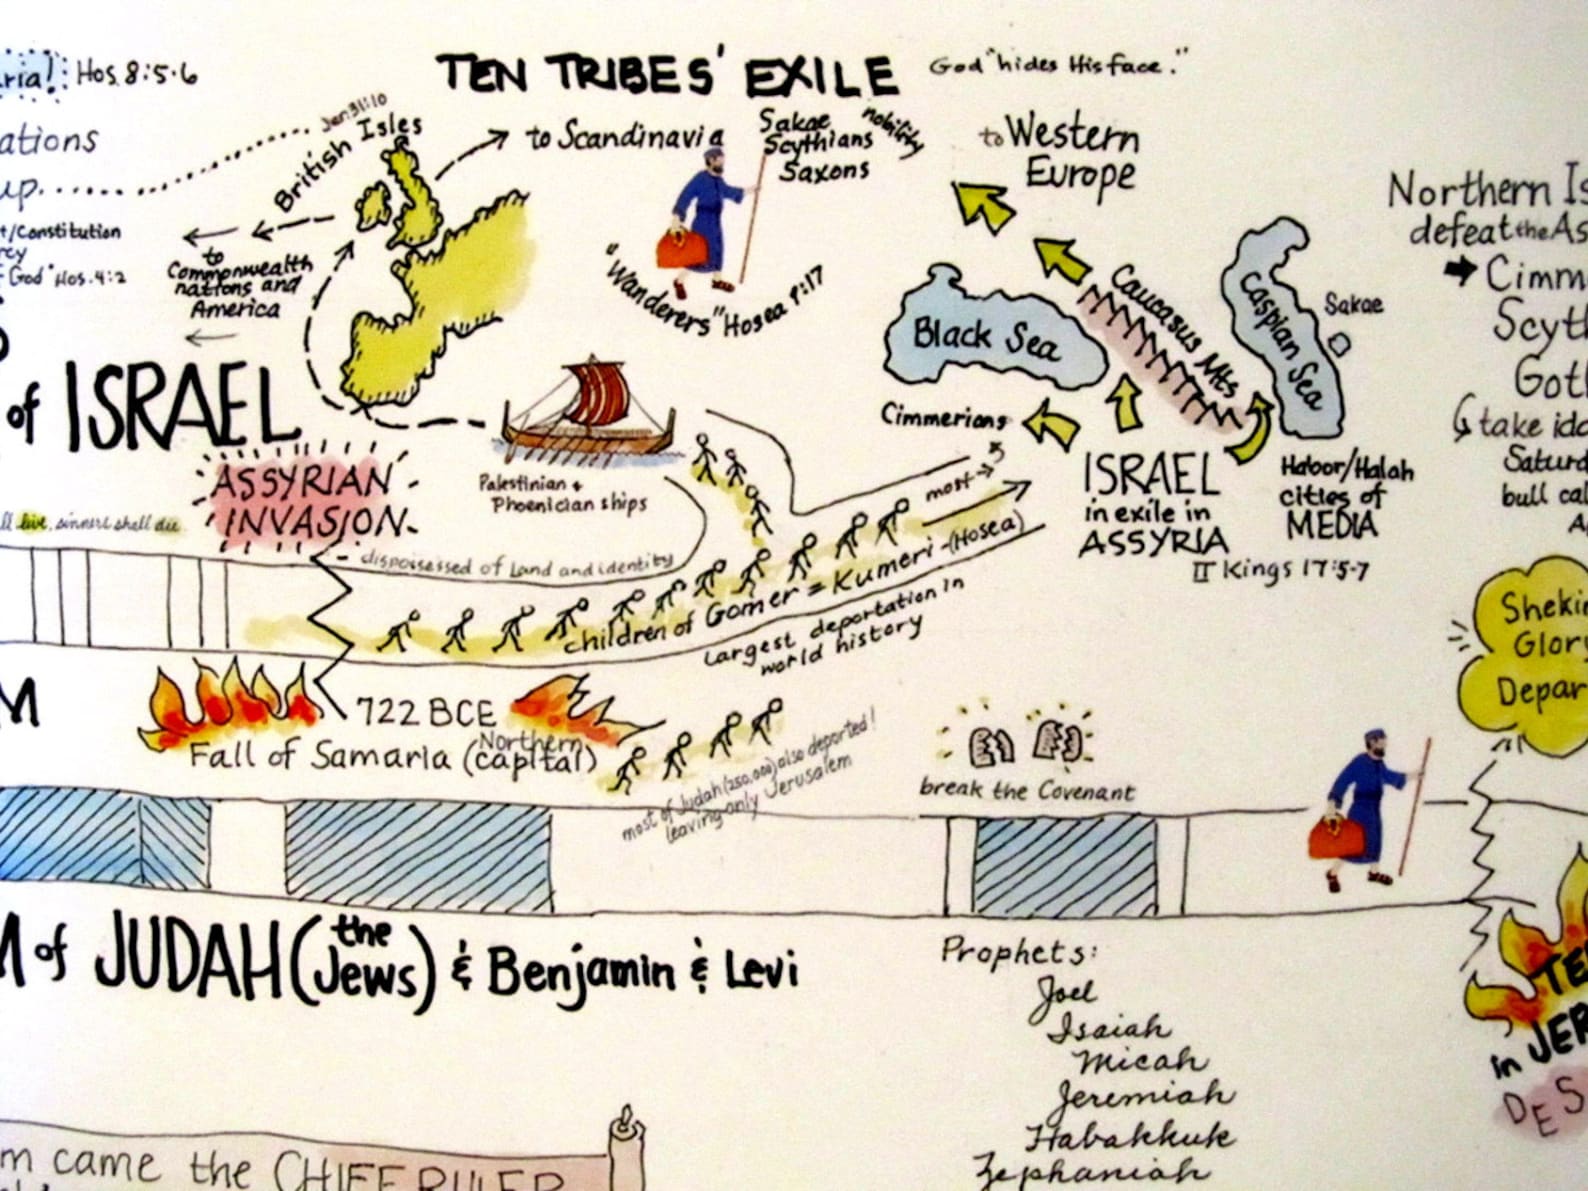 ria! Hos. 8:5-6
TEN TRIBES' EXILE
God "hides His face."
ations
up
Jer. 31:10
British Isles
to Scandinavia
Sakae
Scythians
Saxons
nobility
to Western
Europe
t/Constitution
cy
God" Hos. 4:2
to
Commonwealth
nations and
America
"Wanderers" Hosea 9:17
Black Sea
Caucasus Mts
Caspian Sea
Sakae
Northern Is
defeat the As
Cimm
Scyth
Goth
take ido
Saturd
bull cal
A
of ISRAEL
Cimmerians
ASSYRIAN
INVASION
Palestinian +
Phoenician ships
most
ISRAEL
in exile in
ASSYRIA
Habor/Halah
cities of
MEDIA
II Kings 17:5-7
ll live, sinners shall die
dispossessed of Land and identity
children of Gomer = Kumeri - (Hosea)
Largest deportation in
world history
Shekin
Glory
Depar
M
722 BCE
Fall of Samaria (Northern
capital)
most of Judah (250,000) also deported!
leaving only Jerusalem
break the Covenant
M of JUDAH (the
Jews) & Benjamin & Levi
Prophets:
Joel
Isaiah
Micah
Jeremiah
Habakkuk
Zephaniah
TE
in JER
DES
m came the CHIEF RULER